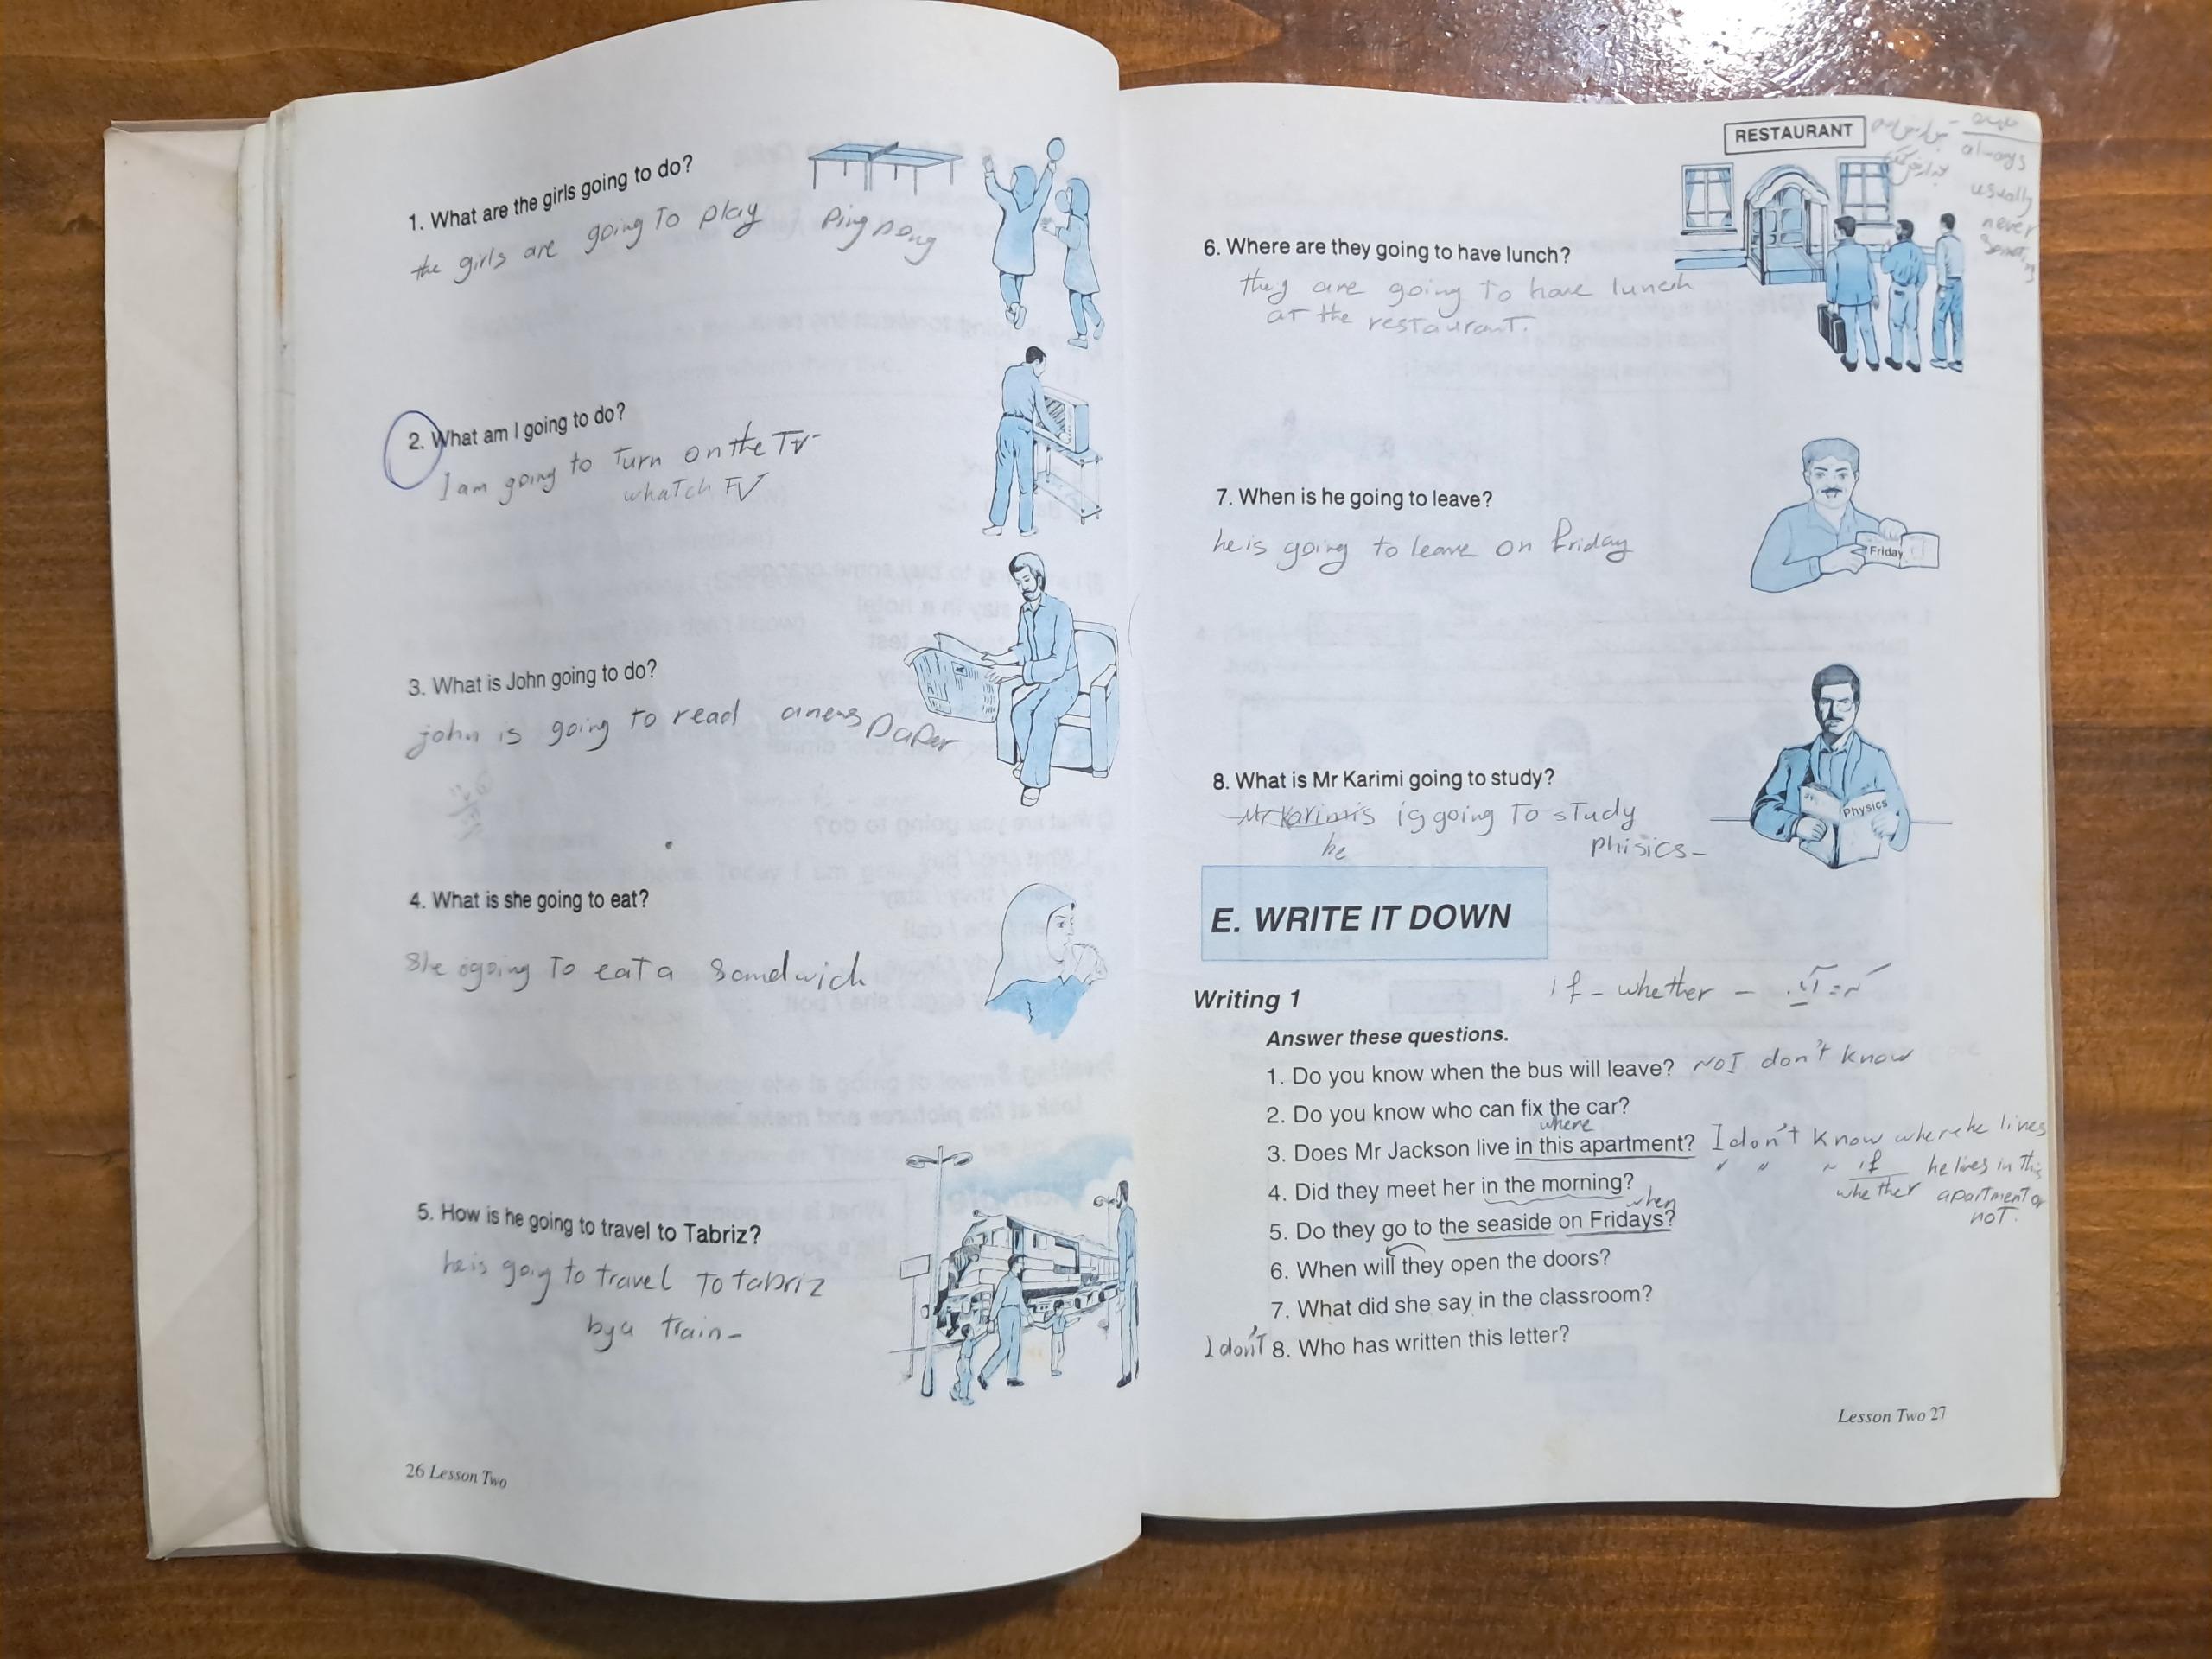 1. What are the girls going to do?
the girls are going To play Ping pong
2. What am I going to do?
I am going to Turn on the TV
whaTch TV
3. What is John going to do?
john is going to read a news paper
4. What is she going to eat?
She going To eat a Sandwich
5. How is he going to travel to Tabriz?
he is going to travel To tabriz
by a train-
26 Lesson Two
RESTAURANT
always
usually
never
6. Where are they going to have lunch?
they are going To have lunch
at the restaurant.
7. When is he going to leave?
he is going to leave on Friday
Friday
8. What is Mr Karimi going to study?
Mr Karimis is going To sTudy
he phisics-
Physics
E. WRITE IT DOWN
If - whether -
Writing 1
Answer these questions.
1. Do you know when the bus will leave? No I don't know
2. Do you know who can fix the car?
where
3. Does Mr Jackson live in this apartment? I don't know where he lives
" " " if he lives in this
4. Did they meet her in the morning? whether apartment or
when not.
5. Do they go to the seaside on Fridays?
6. When will they open the doors?
7. What did she say in the classroom?
I don't 8. Who has written this letter?
Lesson Two 27